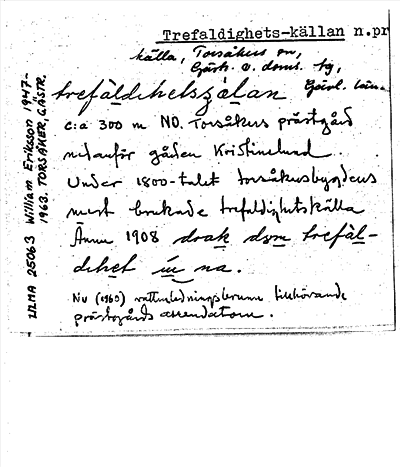 Trefaldighets-källan n.pr
källa, Torsåkers sn,
Gästr. ö. doms. tg,
Gävl. län.
trefäldihetsȷälan
c:a 300 m NO. Torsåkers prästgård
nedanför gården Kristinelund.
Under 1800-talet torsåkersbygdens
mest brukade trefaldighetskälla
Ännu 1908 drak dom trefäl-
dihet in na.
Nu (1960) vattenledningsbrunn tillhörande
prästgårds arrendatorn.
ULMA 25063 William Eriksson 1947-
1963. TORSÅKER, GÄSTR.